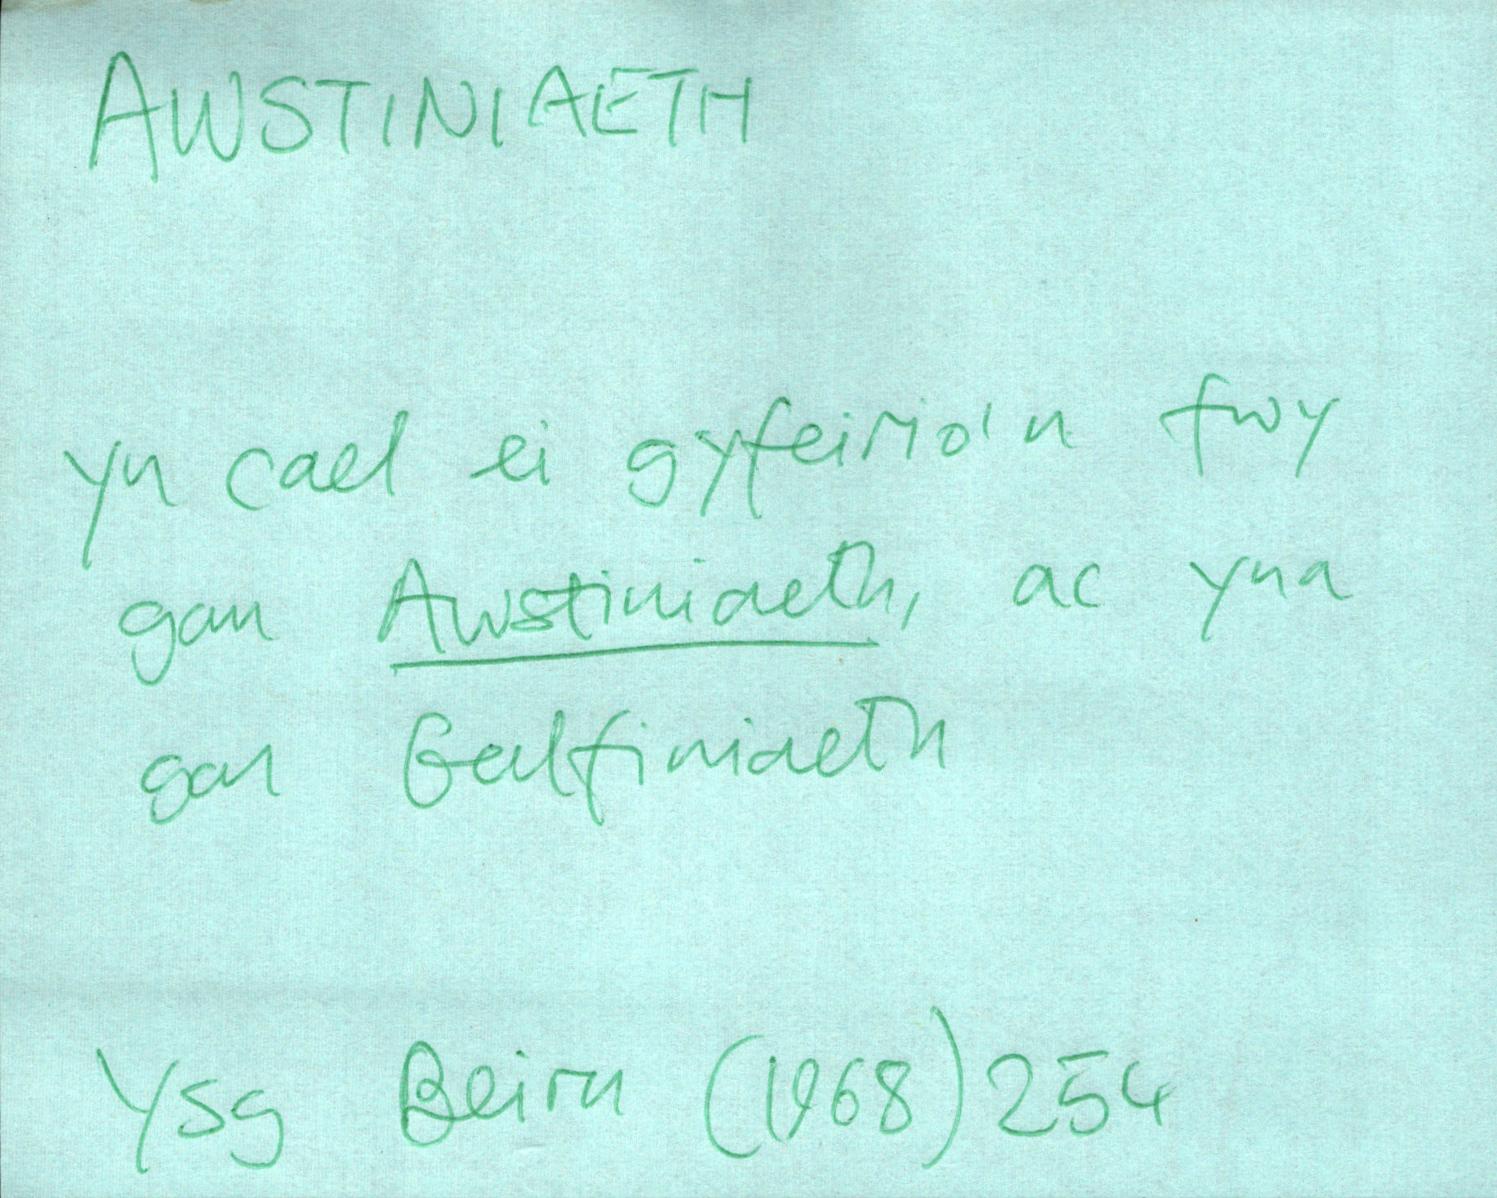 AWSTINIAETH
yn cael ei gyfeirio'n fwy
gan Awstiniaeth, ac yna
gan Galfiniaeth
Ysg Beirn (1968) 254